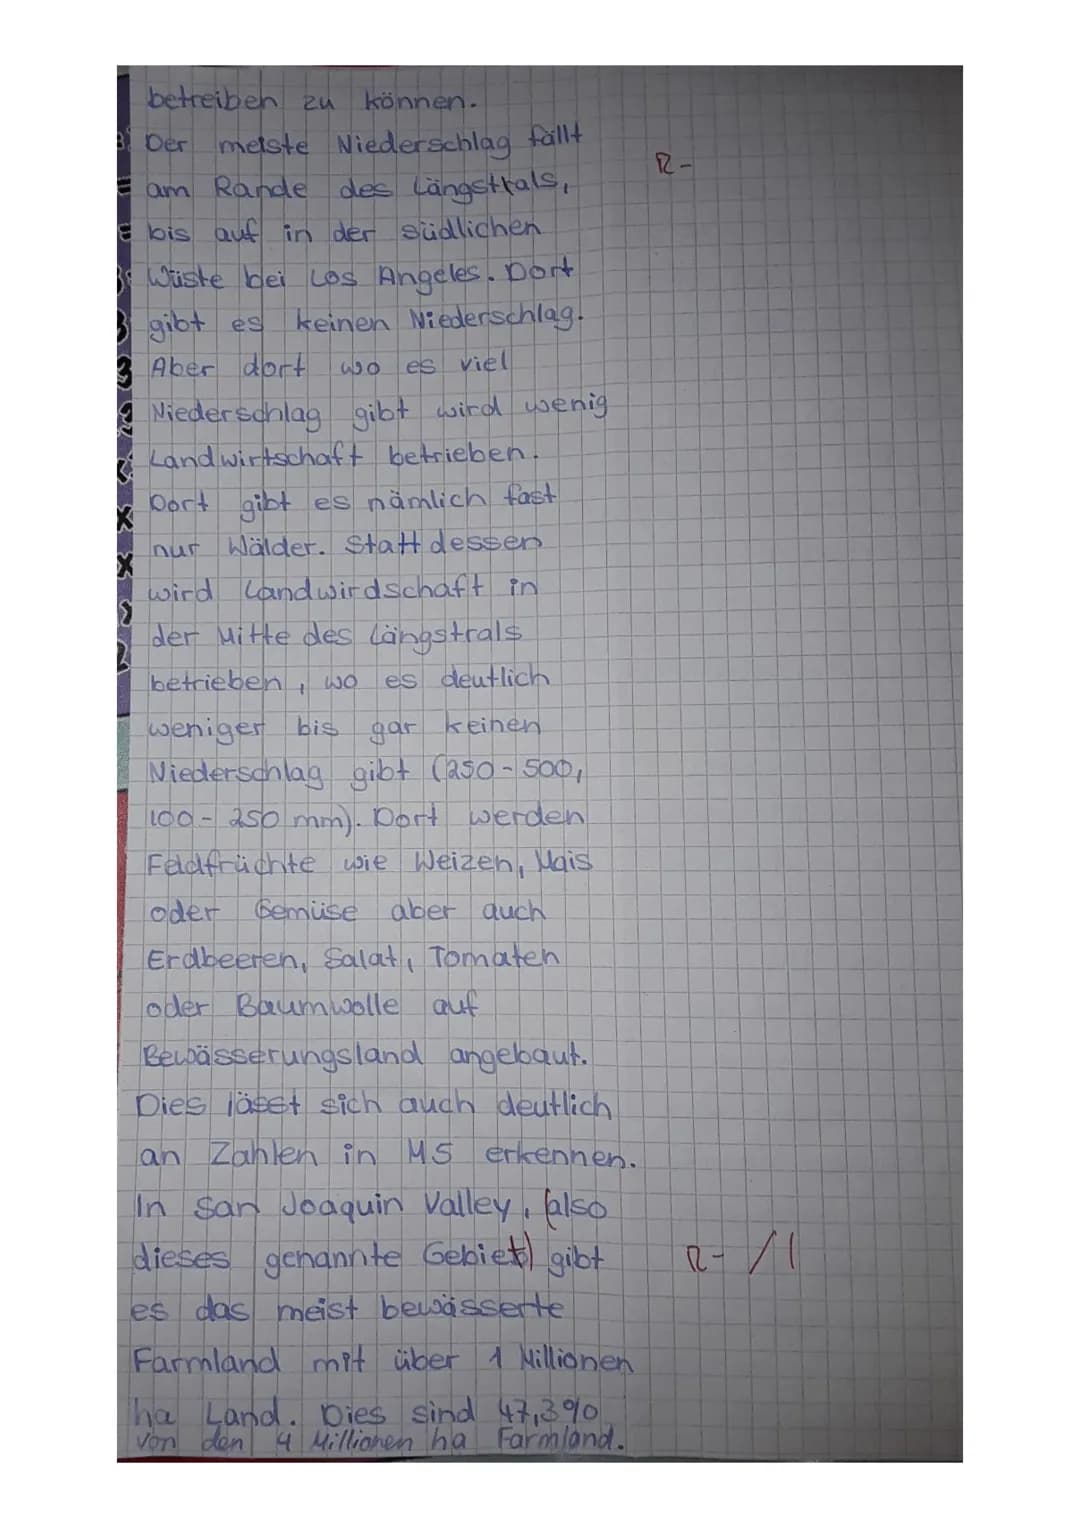 betreiben zu können.
Der meiste Niederschlag fällt
R-
am Rande des Längsttals,
bis auf in der südlichen
Wüste bei Los Angeles. Dort
gibt es keinen Niederschlag.
Aber dort wo es viel
Niederschlag gibt wird wenig
Landwirtschaft betrieben.
Dort gibt es nämlich fast
nur Wälder. Stattdessen
wird Landwirdschaft in
der Mitte des Längstrals
betrieben, wo es deutlich
weniger bis gar keinen
Niederschlag gibt (250-500,
100-250 mm). Dort werden
Feldfrüchte wie Weizen, Mais
oder Gemüse aber auch
Erdbeeren, Salat, Tomaten
oder Baumwolle auf
Bewässerungsland angebaut.
Dies lässt sich auch deutlich
an Zahlen in M5 erkennen.
In San Joaquin Valley, (also
dieses genannte Gebiet) gibt R- /1
es das meist bewässerte
Farmland mit über 1 Millionen
ha Land. Dies sind 47,3%
von den 4 Millionen ha Farmland.